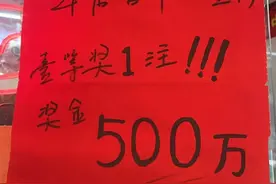 壹等奖1注!!!
奖金500万